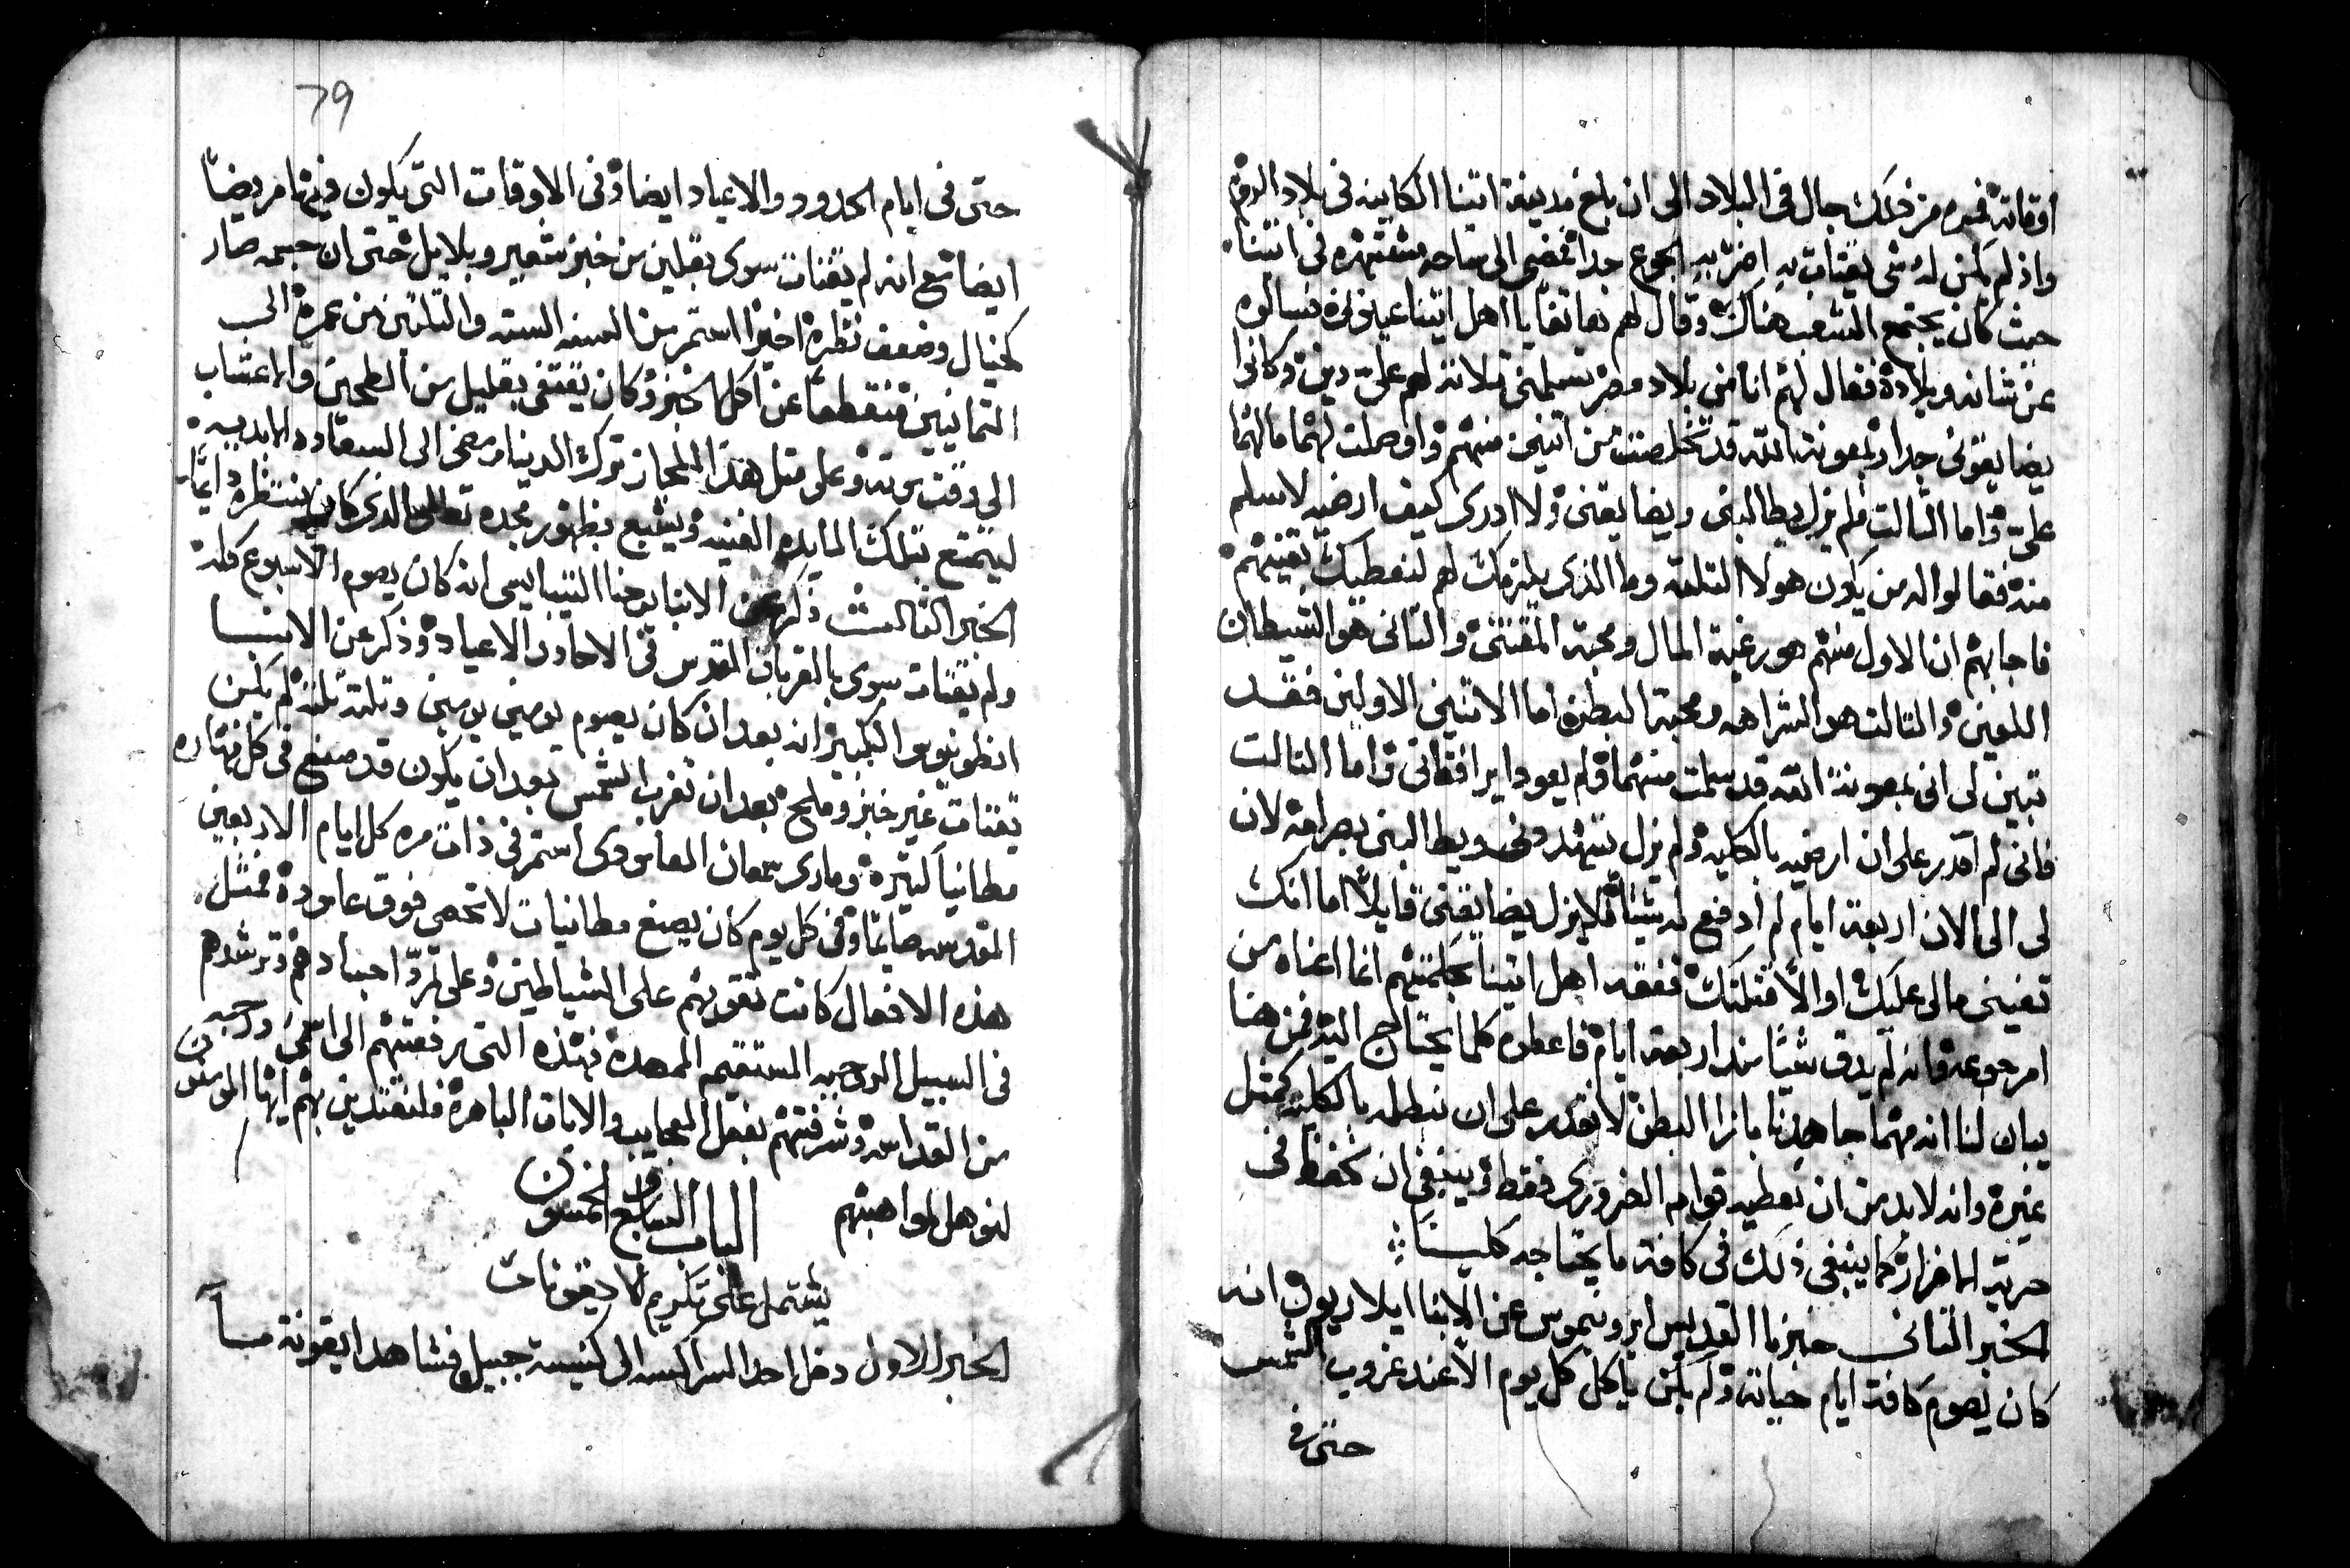 اوقاته فمره من ذلك جال في البلاد الى ان بلغ مدينة اتينا الكاينه في بلاد الروم
واذ لم يكن له شي يقتات به اضر به الجوع جدا فمضى الى ساحه مشتهره في اتينا
حيث كان يجتمع الشعب هناك وقال لهم يا اهل اتينا عينوني فسالوه
عن شانه وبلاده فقال لهم انا من بلاد مصر تسلمني ثلاثه لهم علي دين وكانوا
يضايقوني جدا وبمعونة الله قد تخلصت من اتنين منهم واوصلت لهما ما لهما
علي واما الثالث فلم يزل يطالبني ويضايقني ولا ادري كيف ارضيه لاسلم
منه فقالوا له من يكون هولا التلته وما الذي يلزمك لهم لنعطيك تقينهم
فاجابهم ان الاول منهم هو رغبة المال ومحبة المقتنى والتاني هو الشيطان
اللعين والتالت هو الشراهه ومحبة البطن اما الاتنين الاولين فقد
تبين لي اني بمعونة الله قد سلمت منهما ولم يعودا يرافقاني واما التالت
فاني لم اقدر على ان ارضيه بالكليه ولم يزل يتهددني ويطالبني بصرامه لان
لي الى الان اربعة ايام لم ادفع له شيئا فلا يزل يضايقني قايلا اما انك
تفيني مالي عليك او الا قتلتك ففقه اهل اتينا بحكمتهم انما اعناه من
امر جوعه وانه لم يدق شيئا منذ اربعة ايام فاعطوه كلما يحتاج اليه فمن هنا
يبان لنا انه مهما جاهدنا بازا البطن لا نقدر على ان نبطله بالكليه كمثل
غيره وانه لا بد من ان نعطيه قوام الضروري فقط وينبغي ان نحفظ في
حرية الافراز كما ينبغي ذلك في كافة ما يحتاجه كليتا
الخبر التاني خبرنا القديس ايرونيموس عن الابنا ايلاريون انه
كان يصوم كافة ايام حياته ولم يكن ياكل كل يوم الا عند غروب الشمس
حتى في
79
حتى في ايام الحدود والاعياد ايضا وفي الاوقات التي يكون فيها مريضا
ايضا مع انه لم يقتات سوى بقليل من خبز شعير وبلابل حتى ان جسمه صار
كخيال وضعف نظره اخيرا استمر من السنه السته والتلتين من عمره الى
التمانين منقطعا عن اكل الخبز وكان يقتفي بقليل من الطحين والاعشاب
الى وقت موته وعلى متل هذا المجاز ترك الدنيا ومضى الى السعاده الابديه
ليتمتع بتلك المايده الغنيه ويشبع بظهور مجده تعالى الذي كان ينتظره دايما
الخبر التالت ذكر عن الابنا يوحنا التيبايسي انه كان يصوم الاسبوع كله
ولم يقتات سوى بالقربان المقدس في الاحاد والاعياد وذكر عن الابنا
انطونيوس الكبير انه بعد ان كان يصوم يومين يومين وتلته تلته لم يكن
يقتات غير خبز وملح بعد ان تغرب الشمس بعد ان يكون قد صنع في كل نهاره
مطانيا كتيره وماري سمعان العامودي استمر في ذات مره كل ايام الاربعين
المقدسه صايما وفي كل يوم كان يصنع مطانيات لا تحصى فوق عاموده فمتل
هذه الافعال كانت تقويهم على الشياطين وعلى تمرد اجسادهم وترشدهم
في السبيل الروحيه المستقيم الممهده فهذه التي رفعتهم الى اسمى درجه
من القداسه وشرفتهم بفعل العجايب والايات الباهره فلنقتدين بهم ايها المومنون
لنوهل لمواهبهم
الباب السابع والخمسون
يشتمل على تكريم الايقونات
الخبر الاول دخل احد السراكسه الى كنيسة جبيل فشاهد ايقونة مسا